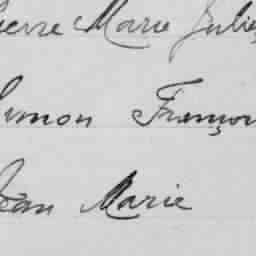 Pierre Marie Julie
Simon François
Jean Marie